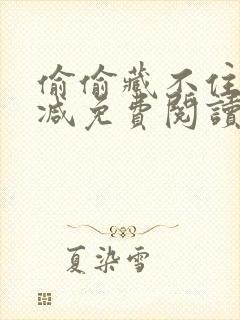 偷偷藏不住
減免費閱讀
夏染雪